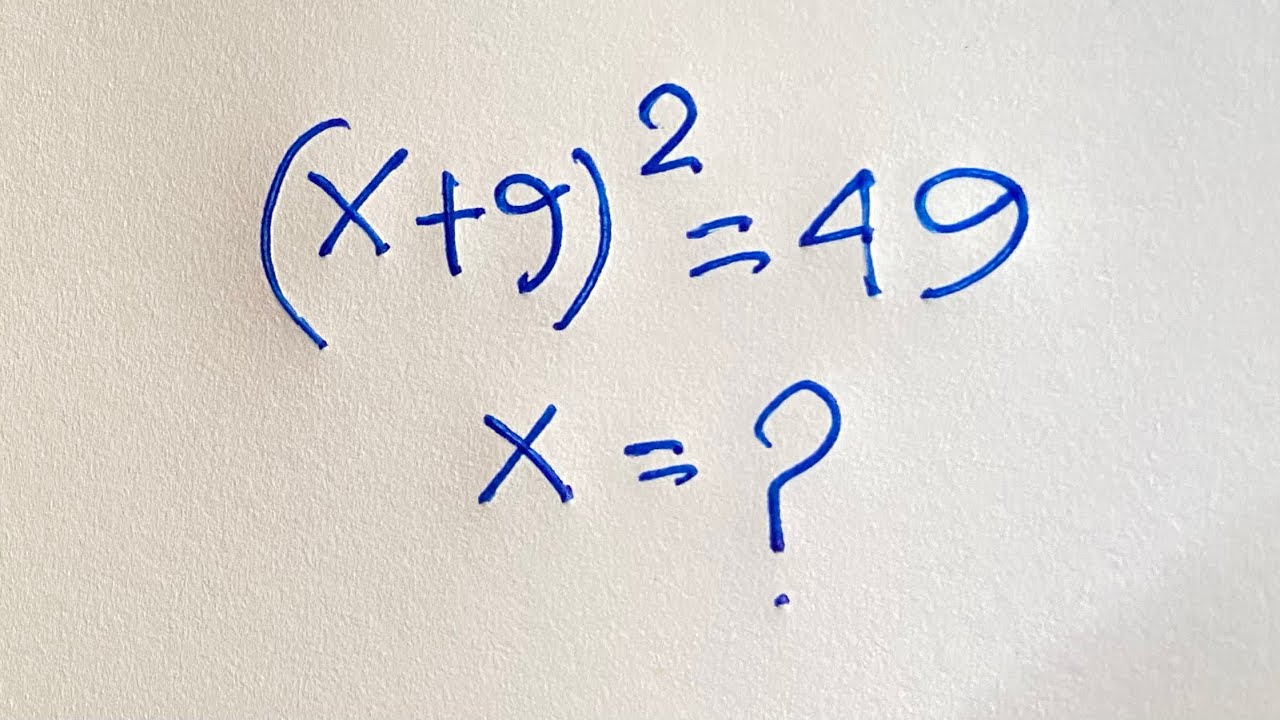 (x+9)² = 49
x = ?